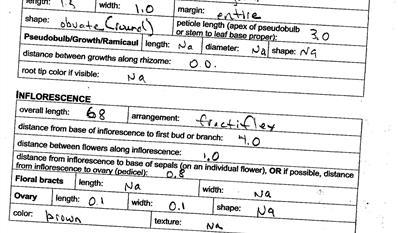 length: 1.2 width: 1.0 margin: entire
shape: obvate (round) petiole length (apex of pseudobulb or stem to leaf base proper): 3.0
Pseudobulb/Growth/Ramicaul length: Na diameter: Na shape: Na
distance between growths along rhizome: 0.0.
root tip color if visible: Na
INFLORESCENCE
overall length: 68 arrangement: fractiflex
distance from base of inflorescence to first bud or branch: 4.0
distance between flowers along inflorescence: 1.0
distance from inflorescence to base of sepals (on an individual flower), OR if possible, distance
from inflorescence to ovary (pedicel): 0.8
Floral bracts length: Na width: Na
Ovary length: 0.1 width: 0.1 shape: Na
color: brown texture: Na